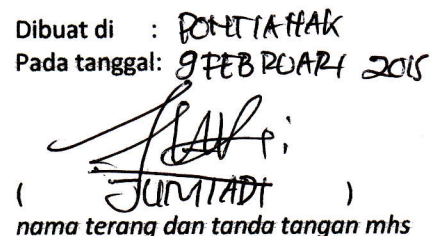 Dibuat di : PONTIANAK
Pada tanggal: 9 FEBRUARI 2015
( JUMIADI )
nama terang dan tanda tangan mhs